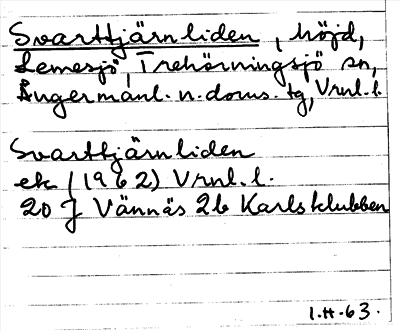 Svarttjärnliden, höjd,
Lemesjö, Trehörningsjö sn,
Ångermanl. n. doms. tg, Vrnl. l.
Svarttjärnliden
ek (1962) Vrnl. l.
20 J Vännäs 2b Karlsklubben
1.H.63.